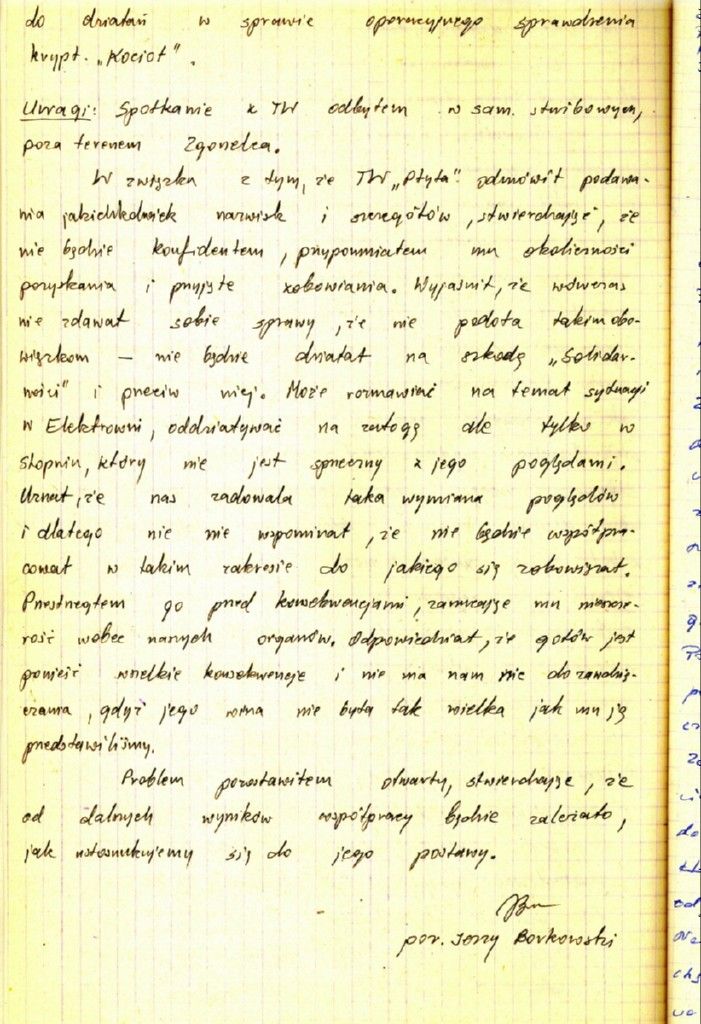 do działań w sprawie operacyjnego sprawdzenia
krypt. „Kocioł”.
Uwagi: Spotkanie z TW odbyłem w sam. służbowym,
poza terenem Zgorzelca.
W związku z tym, że TW „Płyta” odmówił podawa-
nia jakichkolwiek nazwisk i szczegółów, stwierdzając, że
nie będzie konfidentem, przypomniałem mu okoliczności
pozyskania i przyjęte zobowiązania. Wyjaśnił, że wówczas
nie zdawał sobie sprawy, że nie podoła takim obo-
wiązkom – nie będzie działał na szkodę „Solidar-
ności” i przeciw niej. Może rozmawiać na temat sytuacji
w Elektrowni, oddziaływać na załogę ale tylko w
stopniu, który nie jest sprzeczny z jego poglądami.
Uznał, że nas zadowala taka wymiana poglądów
i dlatego nic nie wspominał, że nie będzie współpra-
cował w takim zakresie do jakiego się zobowiązał.
Przestrzegłem go przed konsekwencjami, zarzucając mu nieszcze-
rość wobec naszych organów. Odpowiedział, że gotów jest
ponieść wszelkie konsekwencje i nie ma nam nic do zawdzię-
czania, gdyż jego wina nie była tak wielka jak mu ją
przedstawiliśmy.
Problem pozostawiłem otwarty, stwierdzając, że
od dalszych wyników współpracy będzie zależało,
jak ustosunkujemy się do jego postawy.
por. Jerzy Borkowski